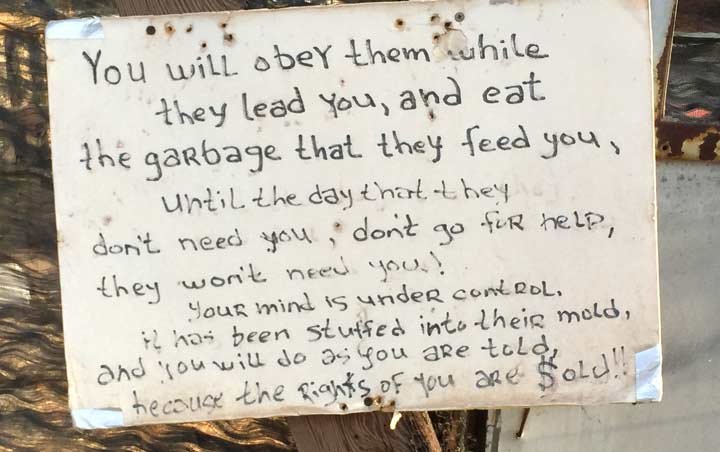 You will obey them while
they lead you, and eat
the garbage that they feed you,
until the day that they
don't need you, don't go for help,
they won't need you!
Your mind is under control.
it has been stuffed into their mold,
and you will do as you are told,
because the Rights of you are $old!!